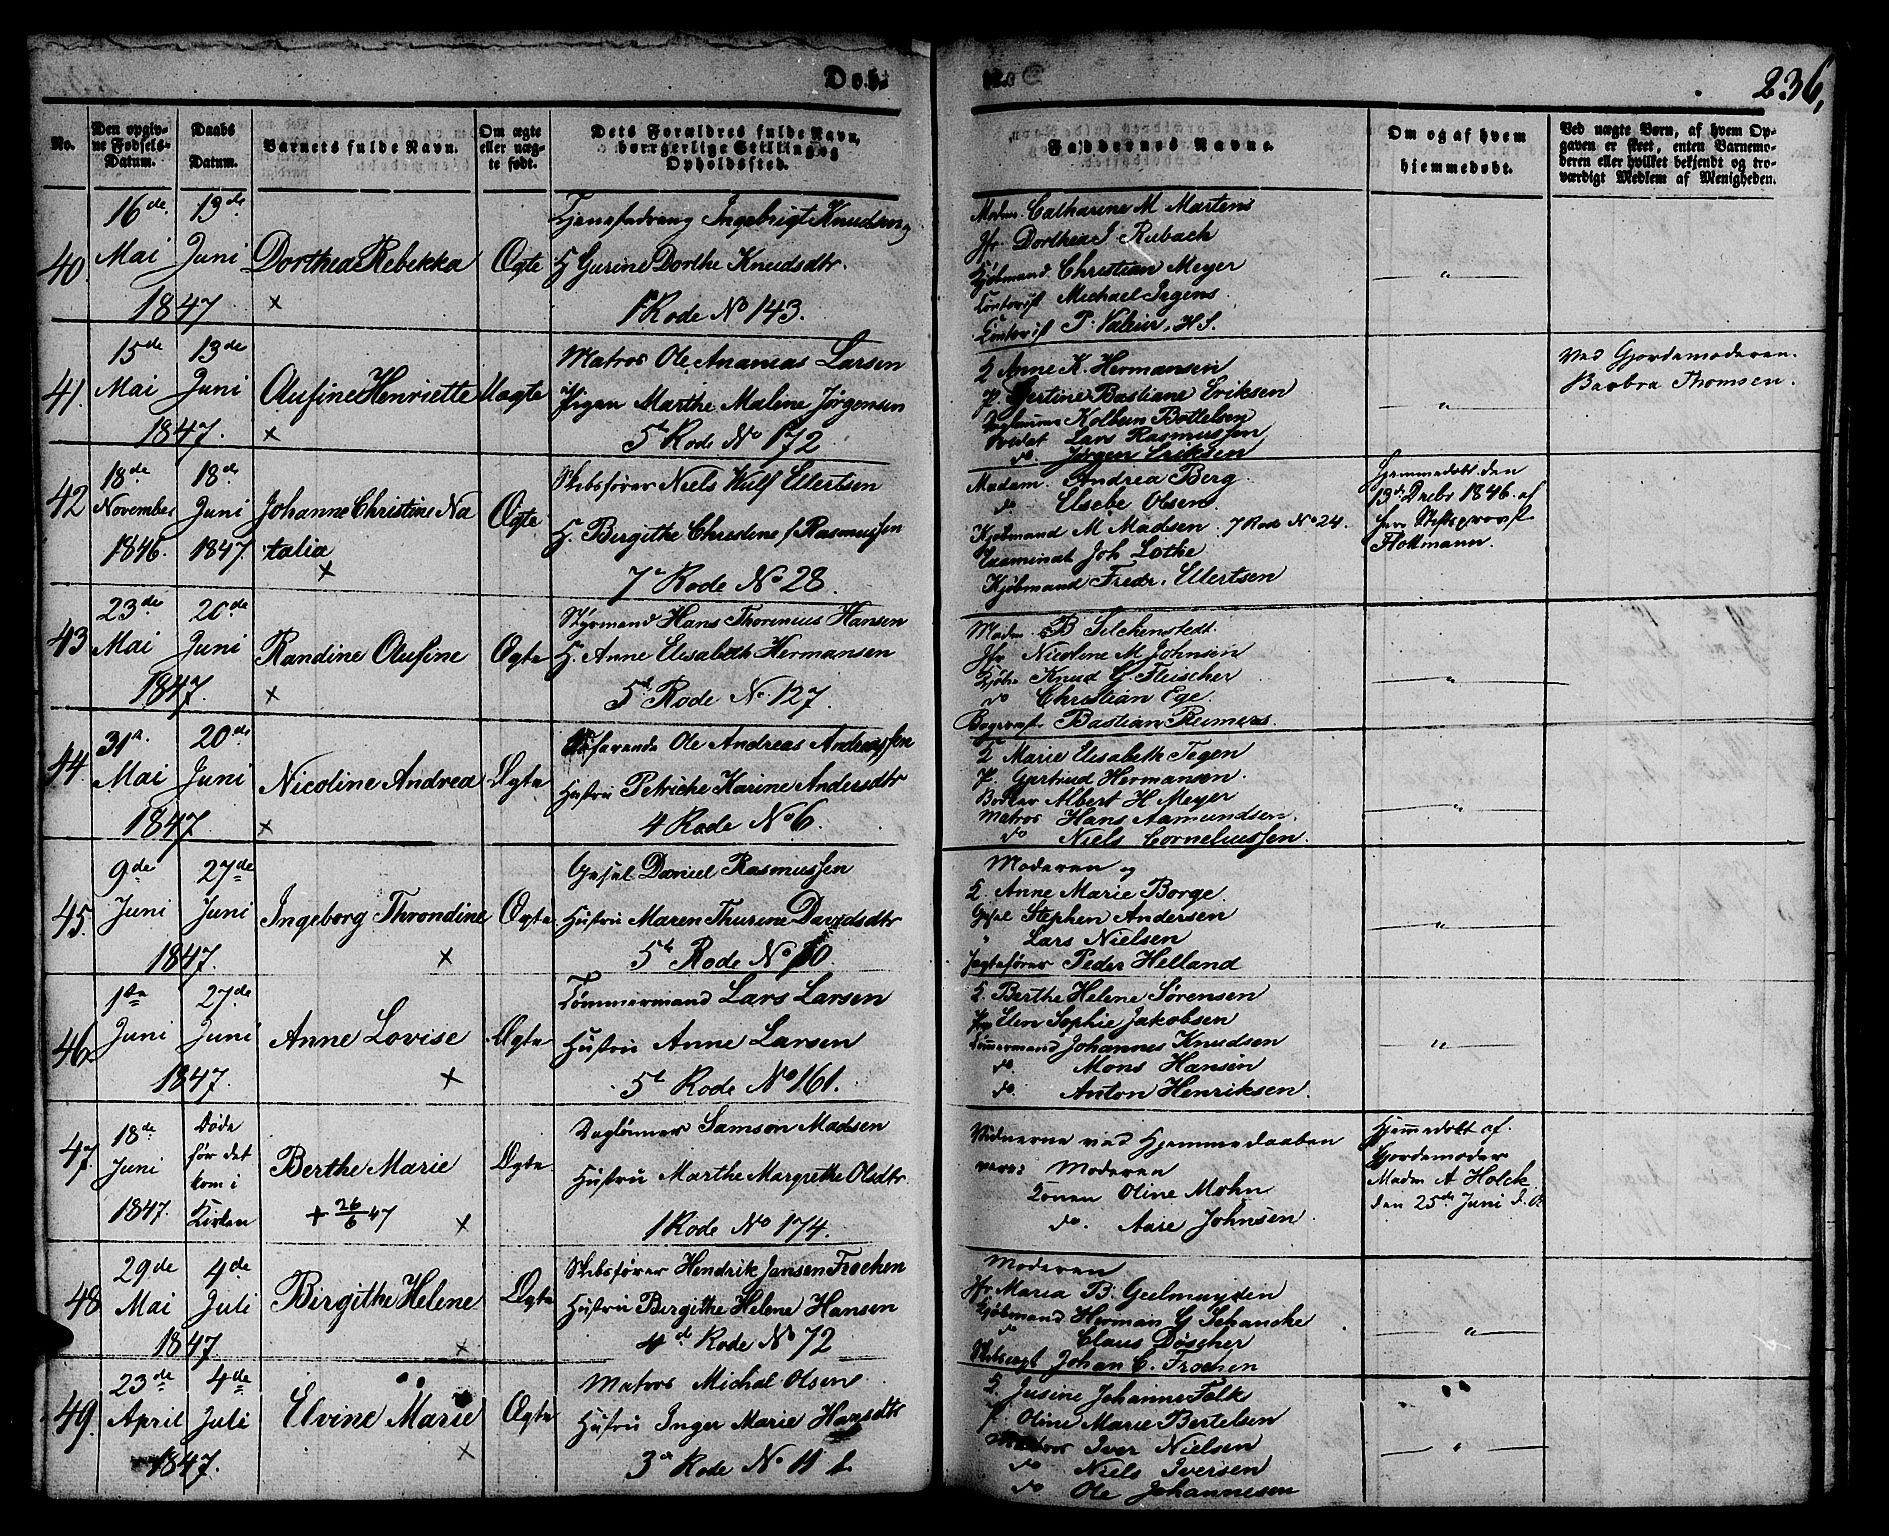 Døbte.
236,
No.
Den opgiv-
ne Fødsels-
Datum.
Daabs
Datum.
Barnets fulde Navn.
Om ægte
eller uæg-
te født.
Dets Forældres fulde Navn,
borgerlige Stilling og
Opholdssted.
Faddernes Navne.
Om og af hvem
hjemmedøbt.
Ved uægte Børn, af hvem Op-
gaven er skeet, enten Barnemo-
deren eller hvilket bekjendt og tro-
værdigt Medlem af Menigheden.
40.
16de
Mai
1847
13de
Juni
Dorthea Rebekka
×
Ægte
Ingebrigt Knudsen
H Gurine Dorthe Knudsdtr.
1 Rode No 143.
Madm. Catharine M Martens
Jfr Dorthea J Rubach
Kjøbmand Christian Meyer
Contorist Michael Irgens
Contorist P. H. S.
"
41.
15de
Mai
1847.
13de
Juni
Olufine Henriette
×
Uægte
Matros Ole Ananias Larsen
Pigen Marthe Malene Jørgensen
5te Rode No 172
K Anne K. Hermansen
P. Gertine Bastiane Eriksen
Kolbein Bottelsen
Soldat Lars Rasmussen
do. Jørgen Eriksen
"
Ved Gjordemoderen.
Barbra Thomsen.
42
18de
November
1846.
18de
Juni
1847.
Johanne Christine Na
talia
×
Ægte
Skibsfører Niels Wulf Ellertsen
H. Birgithe Christine f Rasmussen
7de Rode No 28.
Madam Andrea Berg
do Elsebe Olsen
Kjøbmand M Madsen. 7 Rode No 24.
Examinat Joh Lothe
Kjøbmand Fredr. Ellertsen
Hjemmedøbt den
13de Decbr 1846. af
Herr Stiftsprovst
Flottmann.
43
23de
Mai
1847.
20de
Juni
Randine Olufine
×
Ægte
Styrmand Hans Thorenius Hansen
H. Anne Elisabeth Hermansen
5te Rode No 127.
Madm B Silchenstedt
Jfr Nicoline M Johnsen
Kjøbm Knud G Fleischer
do Christian Ege
Bastian Reimers.
"
44
31te
Mai
1847.
20de
Juni
Nicoline Andrea
×
Ægte
Søfarende Ole Andreas Andreassen
Hustru Petriche Karine Andersdtr
4 Rode No 6.
K Marie Elisabeth Tegen
P. Gertrud Hermansen.
Bødker Albert H Meyer
Matros Hans Aamundsen.
do Niels Corneliussen.
"
45.
9de
Juni
1847.
27de
Juni
Ingeborg Throndine
×
Ægte
Gesel Daniel Rasmussen
Hustru Maren Thurine Davidsdtr
5te Rode No 10
Moderen og
K. Anne Marie Borge.
Gesel Stephen Andersen
" Lars Nielsen
Jagtefører Peder Helland
"
46
1ste
Juni
1847.
27de
Juni
Anne Lovise
×
Ægte
Tømmermand Lars Larsen
Hustru Anne Larsen
5te Rode No 161.
K. Berthe Helene Sørensen
Pig Elen Sophie Jakobsen
Tømmermand Johannes Knudsen
do. Mons Hansen
do. Anton Henriksen.
"
47.
18de
Juni
1847.
Døde
før det
kom i
Kirken
Berthe Marie
+ 26/6 47
×
Ægte
Daglønner Samson Madsen
Hustru Marthe Margrethe Olsdtr
1 Rode No 174.
Vidnerne ved Hjemmedaaben
vare: Moderen
Konen Oline Mohn
do. Aase Johnsen
Hjemmedøbt af
Gjordemoder
Madm A Holck
den 25de Juni d. A
48
29de
Mai
1847.
4de
Juli
Birgithe Helene
×
Ægte
Skibsfører Hendrik Jansen Frochen
Hustru Birgithe Helene Hansen
4de Rode No 72
Moderen
Jfr. Maria B. Geelmuyden
Kjøbmand Herman G Schancke
do Claus Døscher
Johan C. Frochen
"
49.
23de
April
1847.
4de
Juli
Elvine Marie
×
Ægte
Matros Michal Olsen
Hustru Inger Marie Hansdtr
3die Rode No 11
K. Jusine Johanne Falk
P. Oline Marie Bertelsen
Matros Iver Nielsen
do Niels Iversen
do Ole Johannesen
"